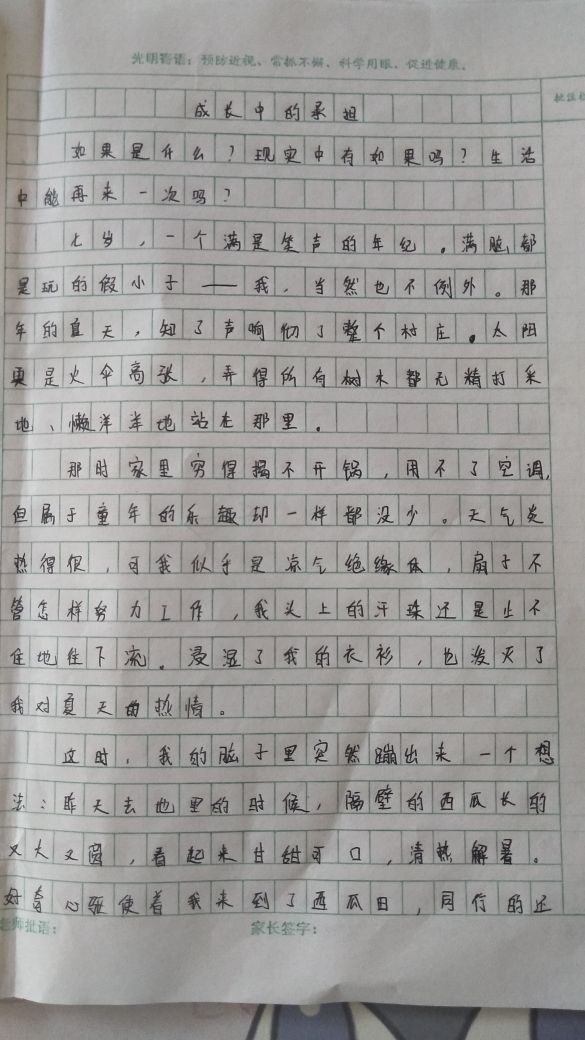 光明寄语：预防近视、常抓不懈、科学用眼、促进健康。
批注栏
成长中的承担
如果是什么？现实中有如果吗？生活
中能再来一次吗？
七岁，一个满是笑声的年纪。满脑都
是玩的假小子——我，当然也不例外。那
年的夏天，知了声响彻了整个村庄。太阳
更是火伞高张，弄得所有树木都无精打采
地、懒洋洋地站在那里。
那时家里穷得揭不开锅，用不了空调，
但属于童年的乐趣却一样都没少。天气炎
热得很，可我似乎是凉气绝缘体，扇子不
管怎样努力工作，我头上的汗珠还是止不
住地往下流。浸湿了我的衣衫，也泼灭了
我对夏天的热情。
这时，我的脑子里突然蹦出来一个想
法：昨天去地里的时候，隔壁的西瓜长的
又大又圆，看起来甘甜可口，清热解暑。
好奇心驱使着我来到了西瓜田，同行的还
老师批语：
家长签字：